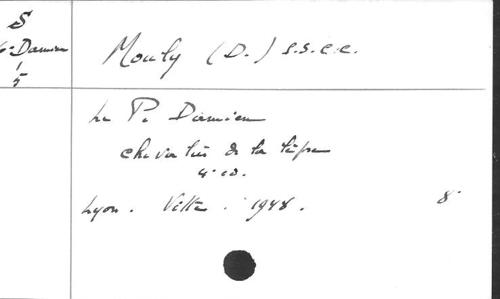 S
Damien
5
Mouly (D.) s.s.c.c.
Le P. Damien
chevalier de la lèpre
4° éd.
Lyon. Vitte. 1948. 8°